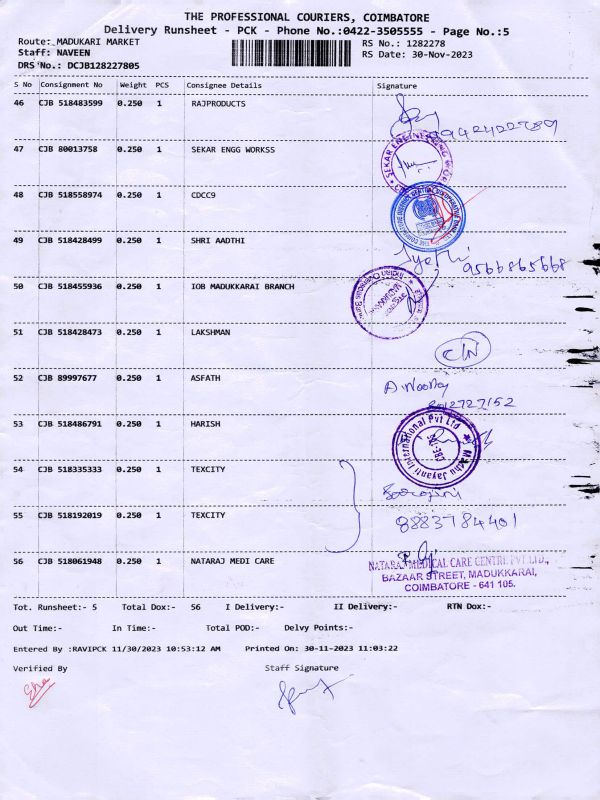 THE PROFESSIONAL COURIERS, COIMBATORE
Delivery Runsheet - PCK - Phone No.:0422-3505555 - Page No.:5
Route: MADUKARI MARKET
RS No.: 1282278
Staff: NAVEEN
RS Date: 30-Nov-2023
DRS No.: DCJB128227805
S No Consignment No Weight PCS Consignee Details Signature
46 CJB 518483599 0.250 1 RAJPRODUCTS
47 CJB 80013758 0.250 1 SEKAR ENGG WORKSS
SEKAR ENGINEERING
48 CJB 518558974 0.250 1 CDCC9
49 CJB 518428499 0.250 1 SHRI AADTHI
9566865668
50 CJB 518455936 0.250 1 IOB MADUKKARAI BRANCH
51 CJB 518428473 0.250 1 LAKSHMAN
52 CJB 89997677 0.250 1 ASFATH
8012727152
53 CJB 518486791 0.250 1 HARISH
Madhu Jayanti International Pvt Ltd
54 CJB 518335333 0.250 1 TEXCITY
55 CJB 518192019 0.250 1 TEXCITY
8883784401
56 CJB 518061948 0.250 1 NATARAJ MEDI CARE
NATARAJ MEDICAL CARE CENTRE PVT LTD.,
BAZAAR STREET, MADUKKARAI,
COIMBATORE - 641 105.
Tot. Runsheet:- 5 Total Dox:- 56 I Delivery:- II Delivery:- RTN Dox:-
Out Time:- In Time:- Total POD:- Delvy Points:-
Entered By :RAVIPCK 11/30/2023 10:53:12 AM Printed On: 30-11-2023 11:03:22
Verified By Staff Signature